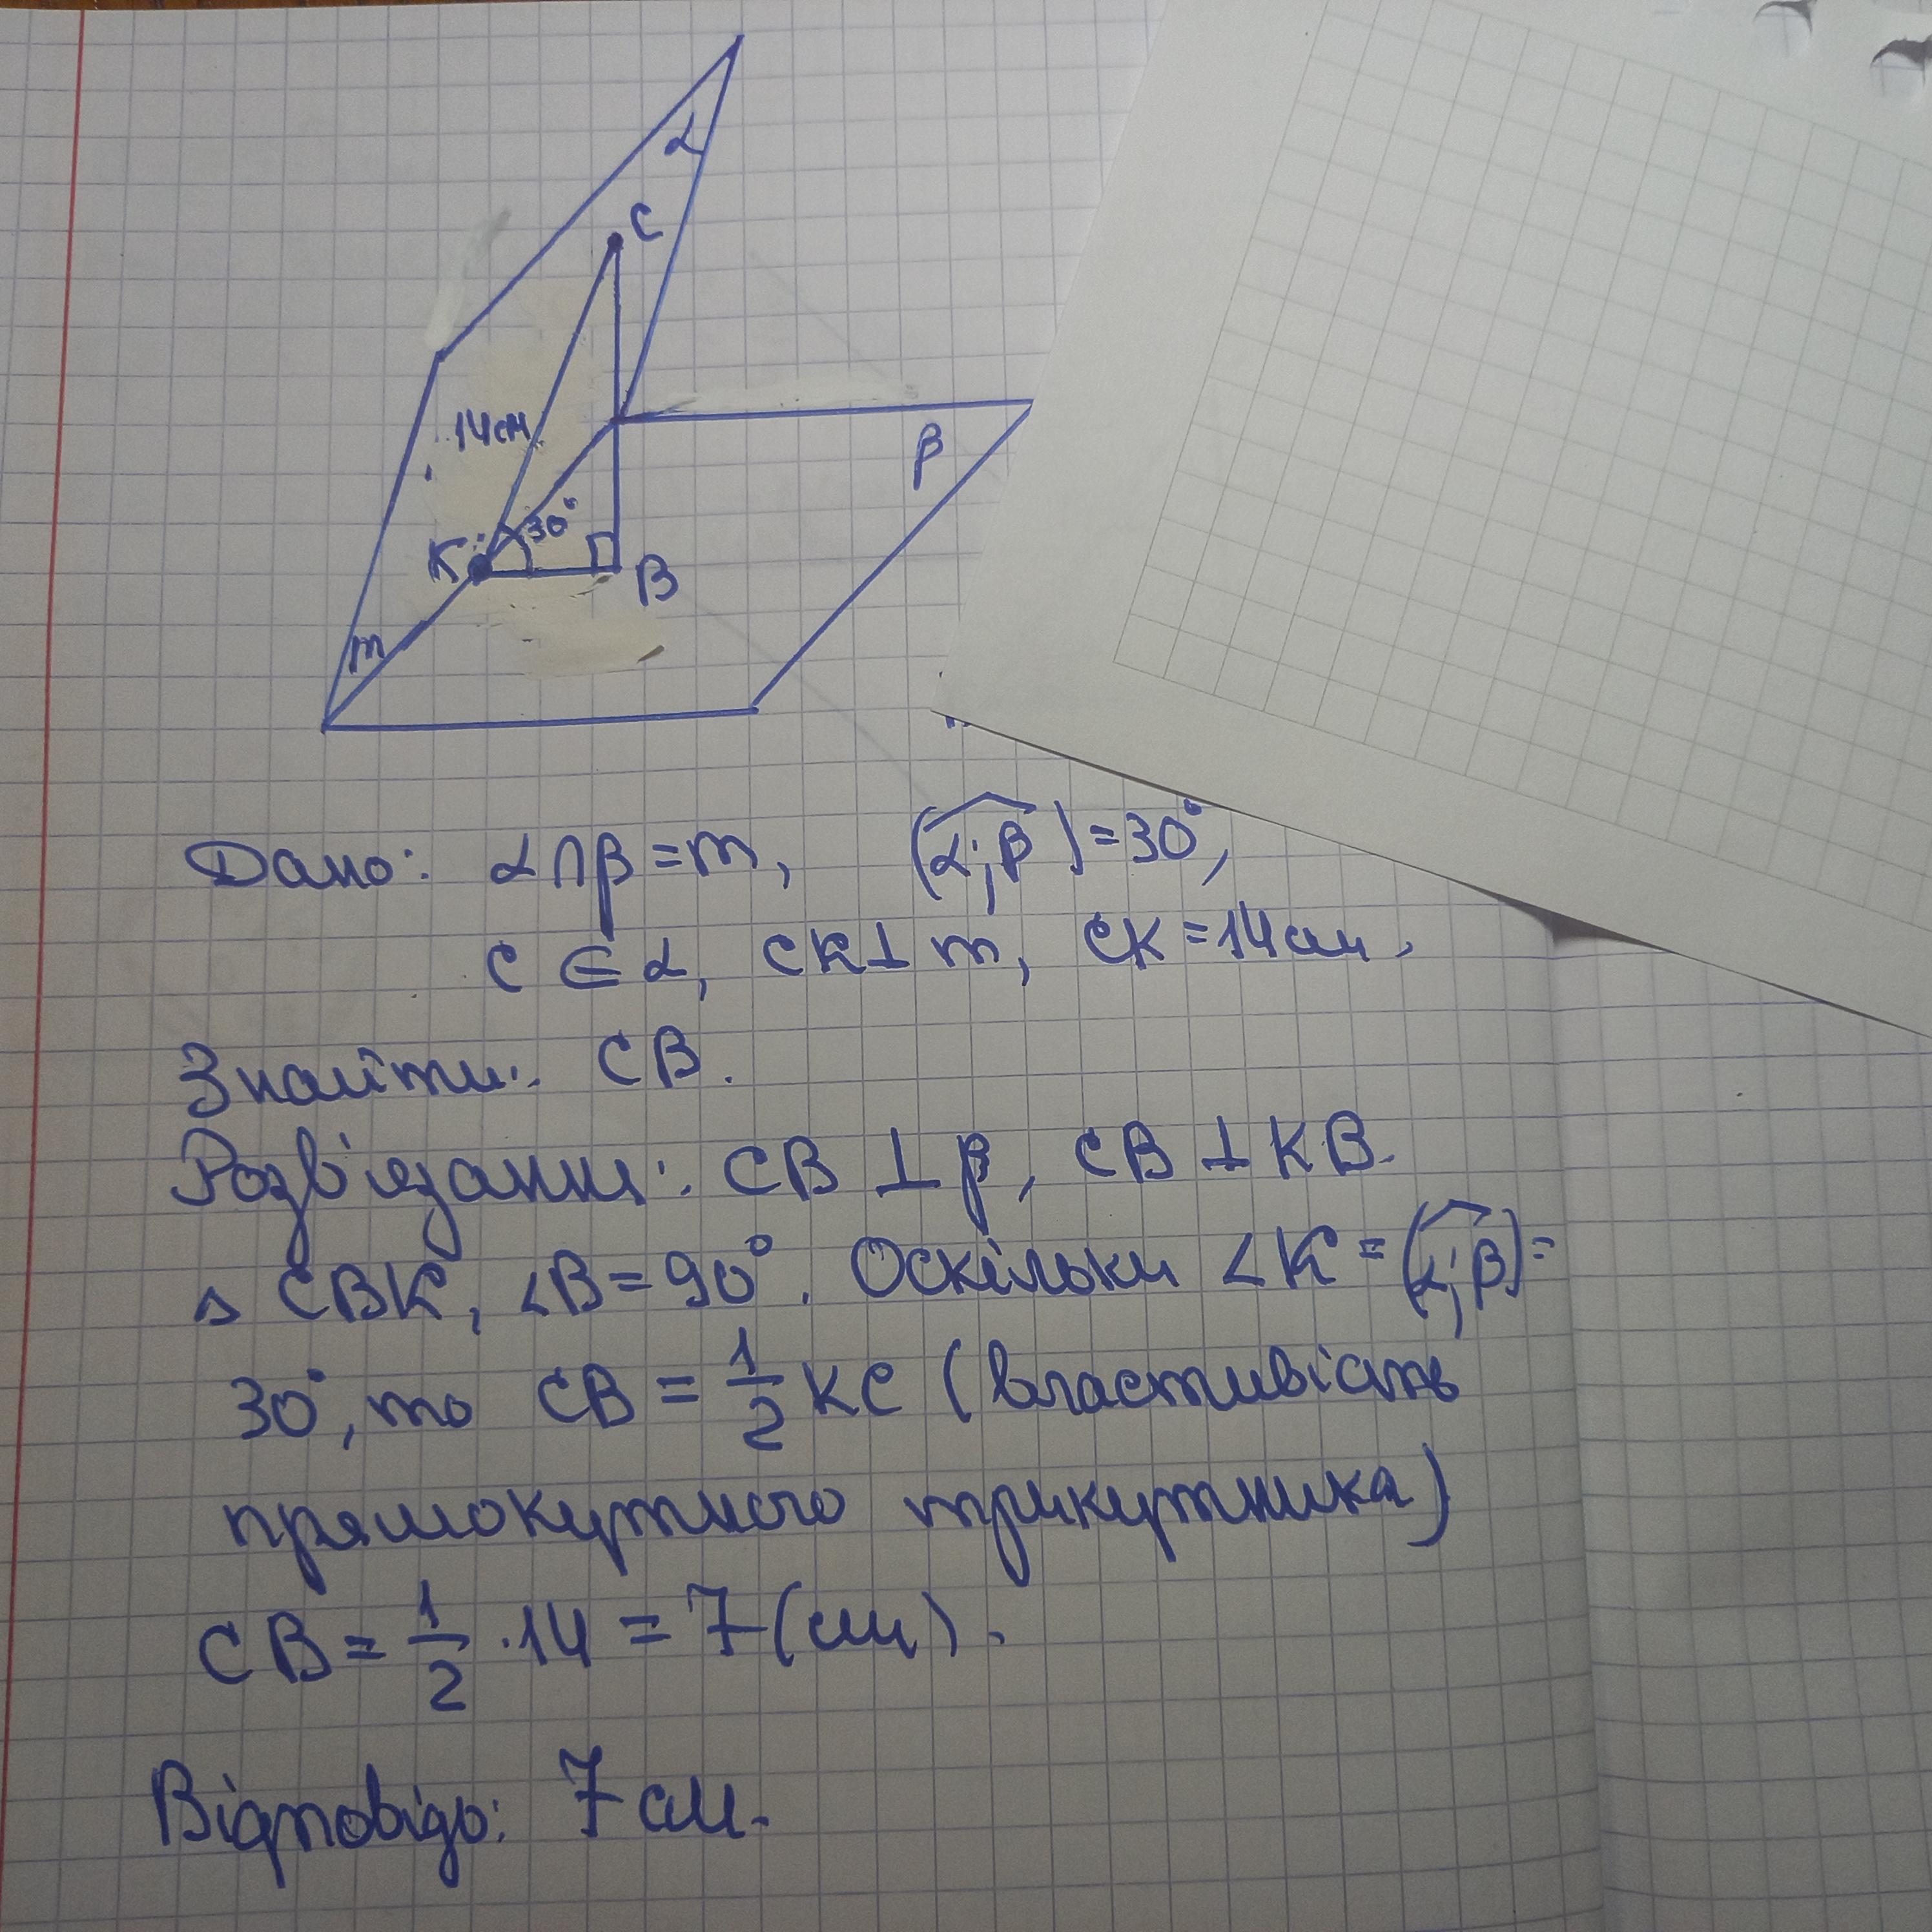 α
C
14см
β
30°
K
B
m
Дано: α∩β=m, (α;β)=30°,
C∈α, CK⊥m, CK=14см.
Знайти: CB.
Розв'язання: CB⊥β, CB⊥KB.
△CBK, ∠B=90°. Оскільки ∠K=(α;β)=
30°, то CB=1/2 KC (властивість
прямокутного трикутника)
CB=1/2·14=7(см).
Відповідь: 7 см.